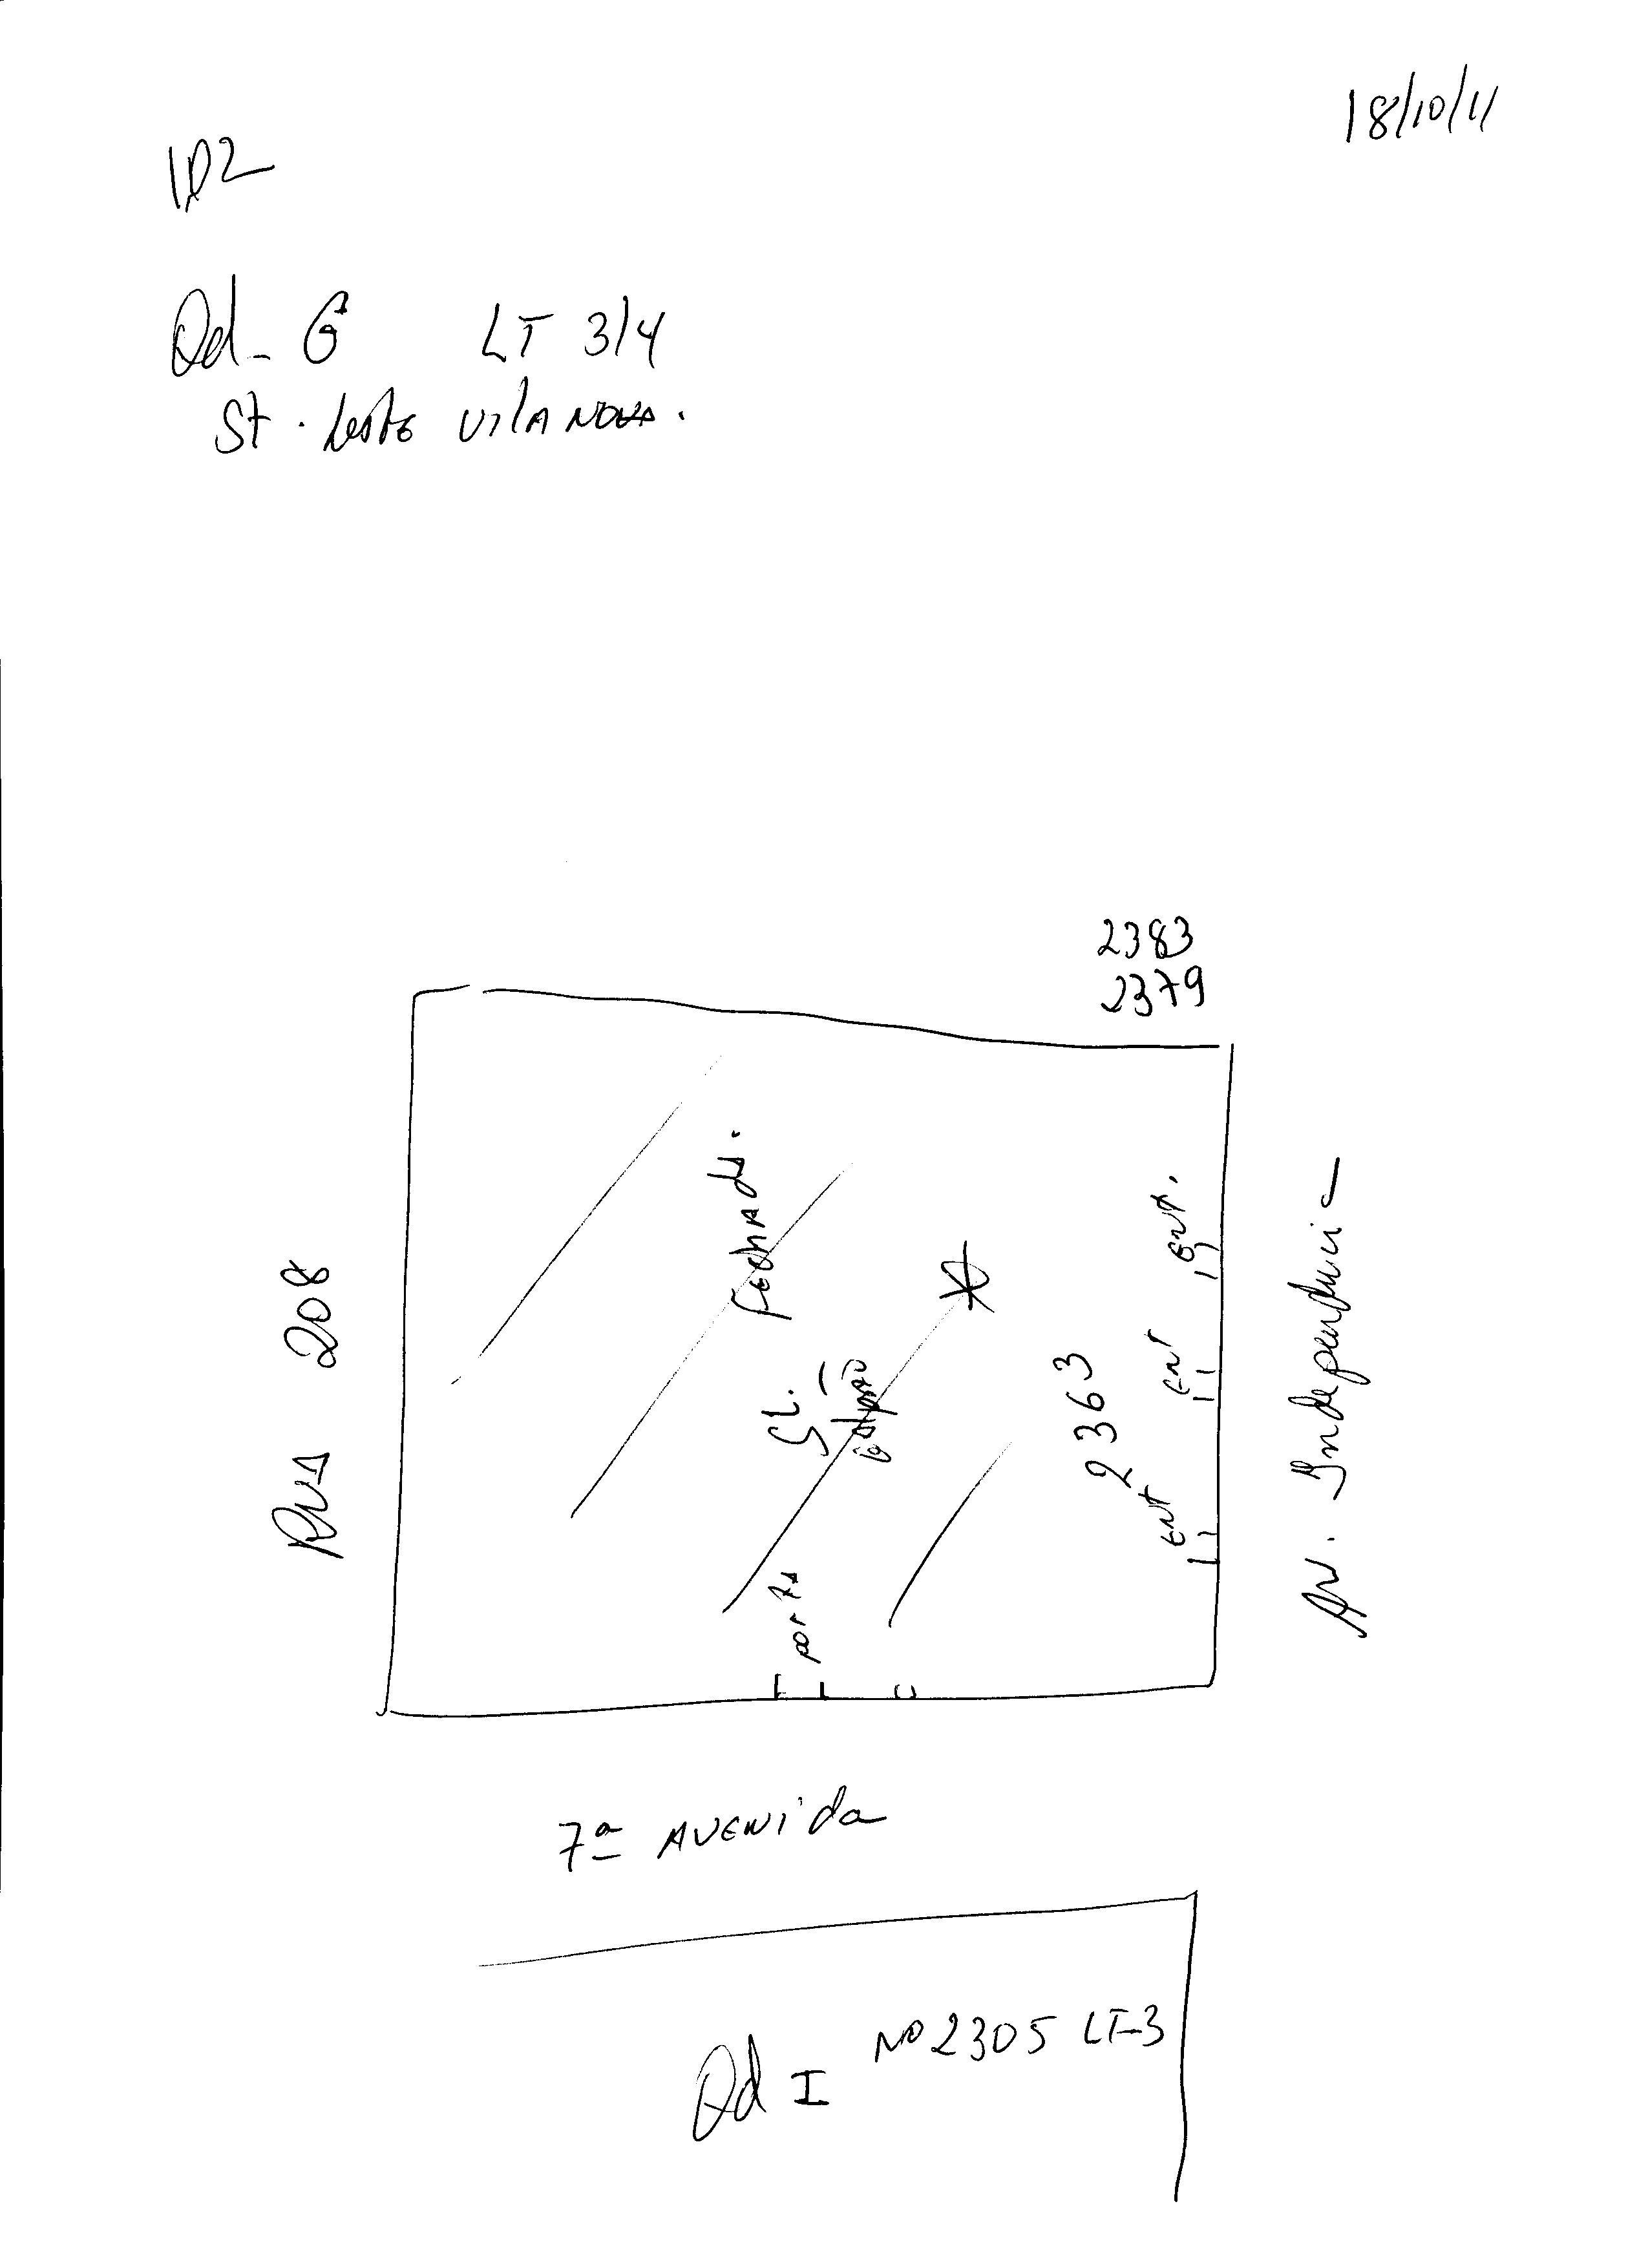 18/10/11
102
Qd- G LT 3/4
St. Leste VILA NOVA.
2383
2379
Fechado.
Galpão
2363
ent.
ent
ent
porta
RUA 208
Av. Independencia
7ª AVENIda
Nº 2305 LT-3
Qd I